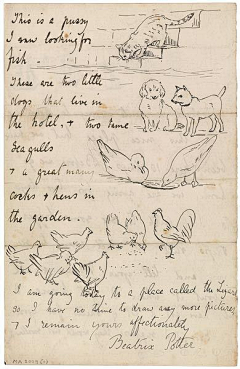 This is a pussy
I saw looking for
fish.
These are two little
dogs that live in
the hotel, & two tame
seagulls
& a great many
cocks & hens in
the garden.
I am going today to a place called the Lizard
so I have no time to draw any more pictures
& I remain yours affectionately
Beatrix Potter